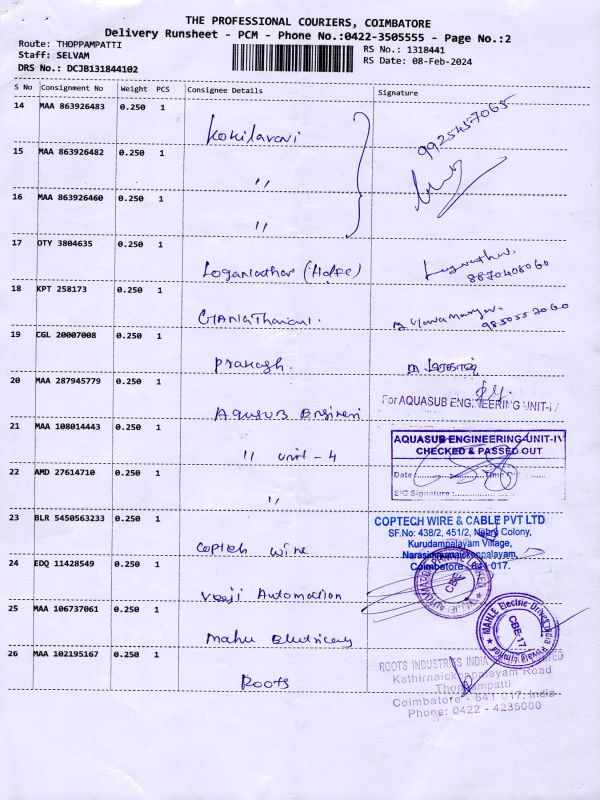 THE PROFESSIONAL COURIERS, COIMBATORE
Delivery Runsheet - PCM - Phone No.:0422-3505555 - Page No.:2
Route: THOPPAMPATTI
Staff: SELVAM
DRS No.: DCJB131844102
RS No.: 1318441
RS Date: 08-Feb-2024
S No Consignment No Weight PCS Consignee Details Signature
14 MAA 863926483 0.250 1
Kokilavani
9925457065
15 MAA 863926482 0.250 1
"
16 MAA 863926460 0.250 1
"
17 OTY 3804635 0.250 1
Loganathan (Hdfc)
8870408060
18 KPT 258173 0.250 1
19 CGL 20007008 0.250 1
Prakash.
20 MAA 287945779 0.250 1
Aqusub
For AQUASUB ENGINEERING UNIT-IV
21 MAA 108014443 0.250 1
" unit - 4
AQUASUB ENGINEERING-UNIT-IV
CHECKED & PASSED OUT
Date: Time:
S/G Signature:
22 AMD 27614710 0.250 1
"
23 BLR 5450563233 0.250 1
Coptech wire
COPTECH WIRE & CABLE PVT LTD
SF.No: 438/2, 451/2, Nehru Colony,
Kurudampalayam Village,
Narasimmanaickenpalayam,
Coimbatore - 641 017.
24 EDQ 11428549 0.250 1
Veeji Automation
25 MAA 106737061 0.250 1
Mahle
MAHLE Electric Drives India Private Limited
CBE-17
26 MAA 102195167 0.250 1
Roots
ROOTS INDUSTRIES INDIA LIMITED
Kathirnaickenpalayam Road
Thoppampatti
Coimbatore - 641 017, India
Phone: 0422 - 4235000